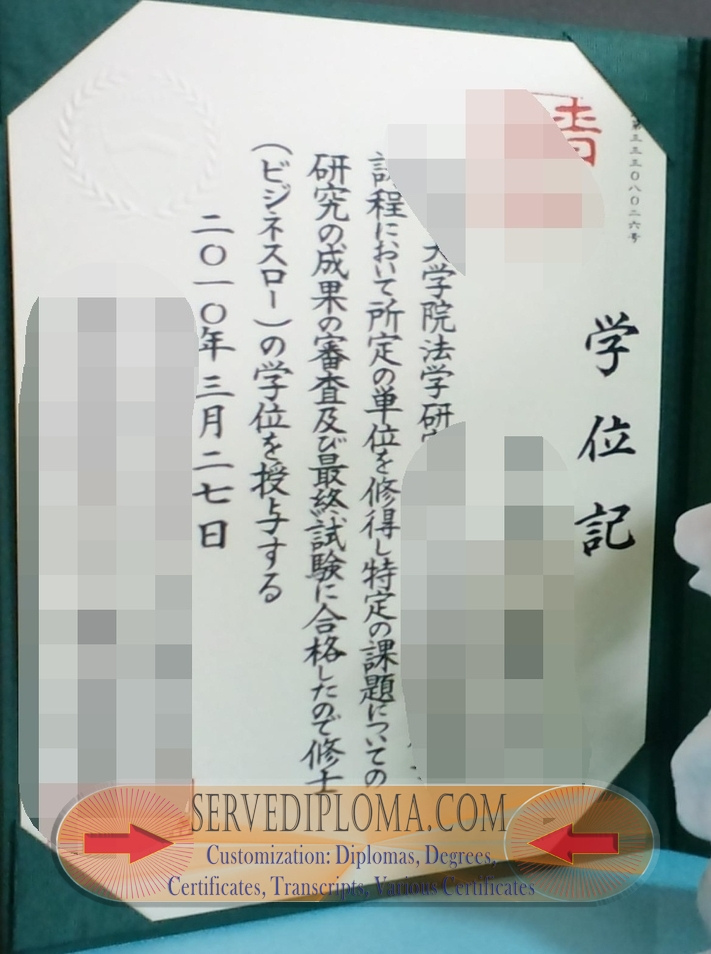 第三三三〇八〇二六号
学位記
大学院法学研
課程において所定の単位を修得し特定の課題についての
研究の成果の審査及び最終試験に合格したので修士
(ビジネスロー)の学位を授与する
二〇一〇年三月二七日
SERVEDIPLOMA.COM
Customization: Diplomas, Degrees,
Certificates, Transcripts, Various Certificates